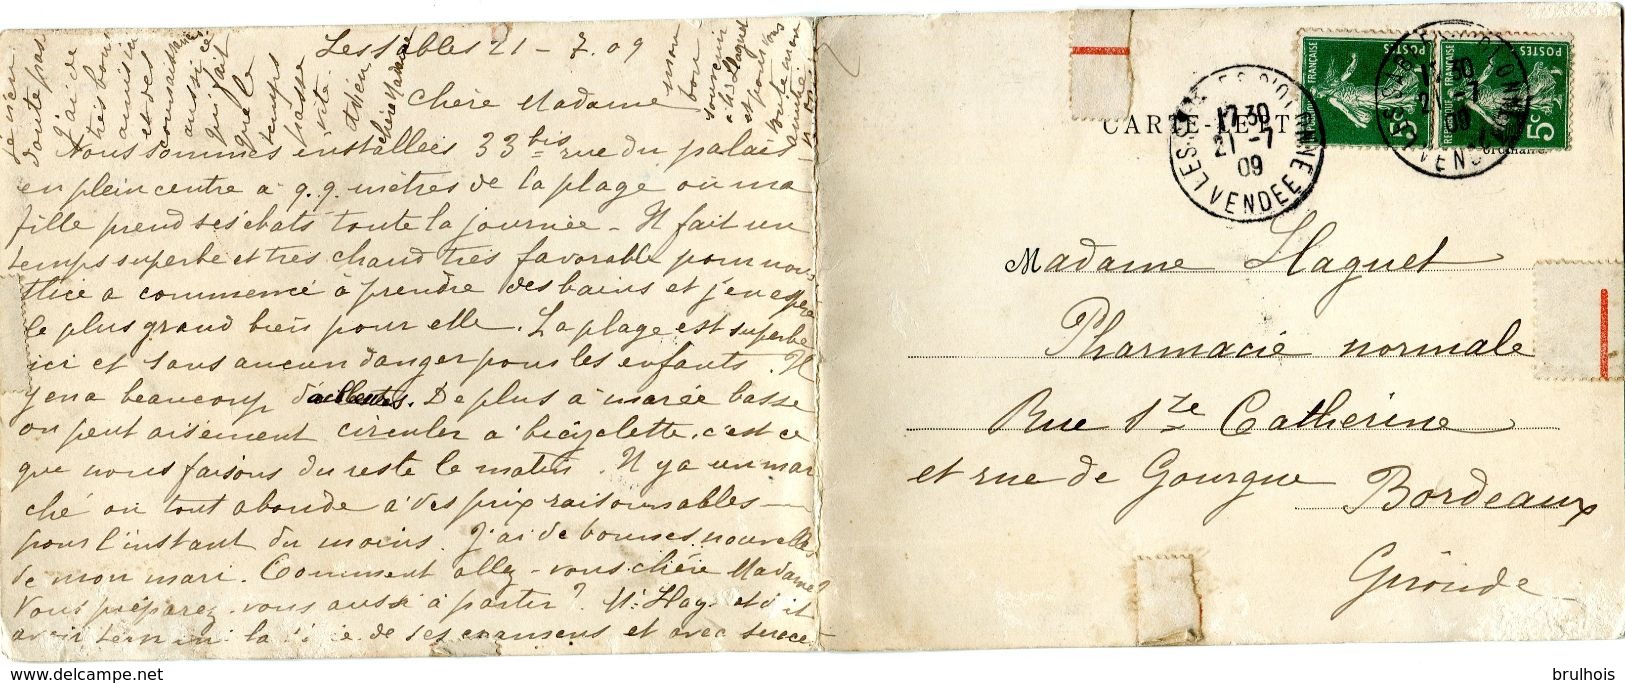 Les Sables 21 - 7. 09
Chère Madame
Nous sommes installées 33 bis rue du palais
en plein centre à q.q. mètres de la plage où ma
fille prend ses ébats toute la journée - Il fait un
temps superbe et très chaud très favorable pour nous
a commencé à prendre des bains et j'en espère
le plus grand bien pour elle. La plage est superbe
ici et sans aucun danger pour les enfants. Il
y en a beaucoup d'ailleurs. De plus à marée basse
on peut aisément circuler à bicyclette, c'est ce
que nous faisons du reste le matin. Il y a un mar
ché où tout abonde à des prix raisonnables -
pour l'instant du moins. J'ai de bonnes nouvelles
de mon mari. Comment allez-vous chère Madame?
Vous préparez-vous aussi à partir? Mr Hag. doit
avoir terminé la de ses examens et avec succès -
Je n'en
doute pas
J'ai de
très bons
amis ici
et des
connaissances
aussi ce
qui fait
que le
temps
passe
vite.
chère Madame
mon
bon
souvenir
à Mr Haguet
et pour vous
toute mon
amitié
CARTE-LETTRE
LES SABLES D'OLONNE
17 30
21 - 7
09
VENDÉE
LES SABLES D'OLONNE
17 30
21 - 7
09
VENDÉE
POSTES
RÉPUBLIQUE FRANÇAISE
5c
POSTES
RÉPUBLIQUE FRANÇAISE
5c
Madame Haguet
Pharmacie normale
Rue Ste Catherine
et rue de Gourgue Bordeaux
Gironde
delcampe.net
brulhois